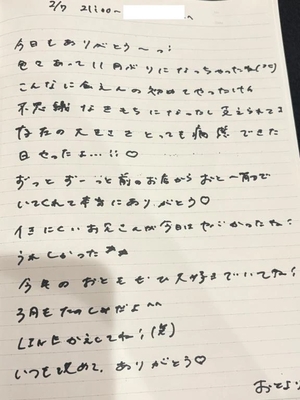 2/7 21:00~
今日もありがとう〜っ!
色々あって11月ぶりになっちゃったね(??)
こんなに会えんの初めてやったけん
不思議なきもちになったし支えられてる
存在の大きさをとっても痛感できた
日やったよ...!!♡
ずっとずーっと前のお店からおと一筋で
いてくれて本当にありがとう♡
行きにくいお兄さんが今日は
うれしかった
今年のおとももひ大好きでいてね!
3月もたのしみだよ^^
LINEかえしてね!(笑)
いつも認めて、ありがとう♡
おとより